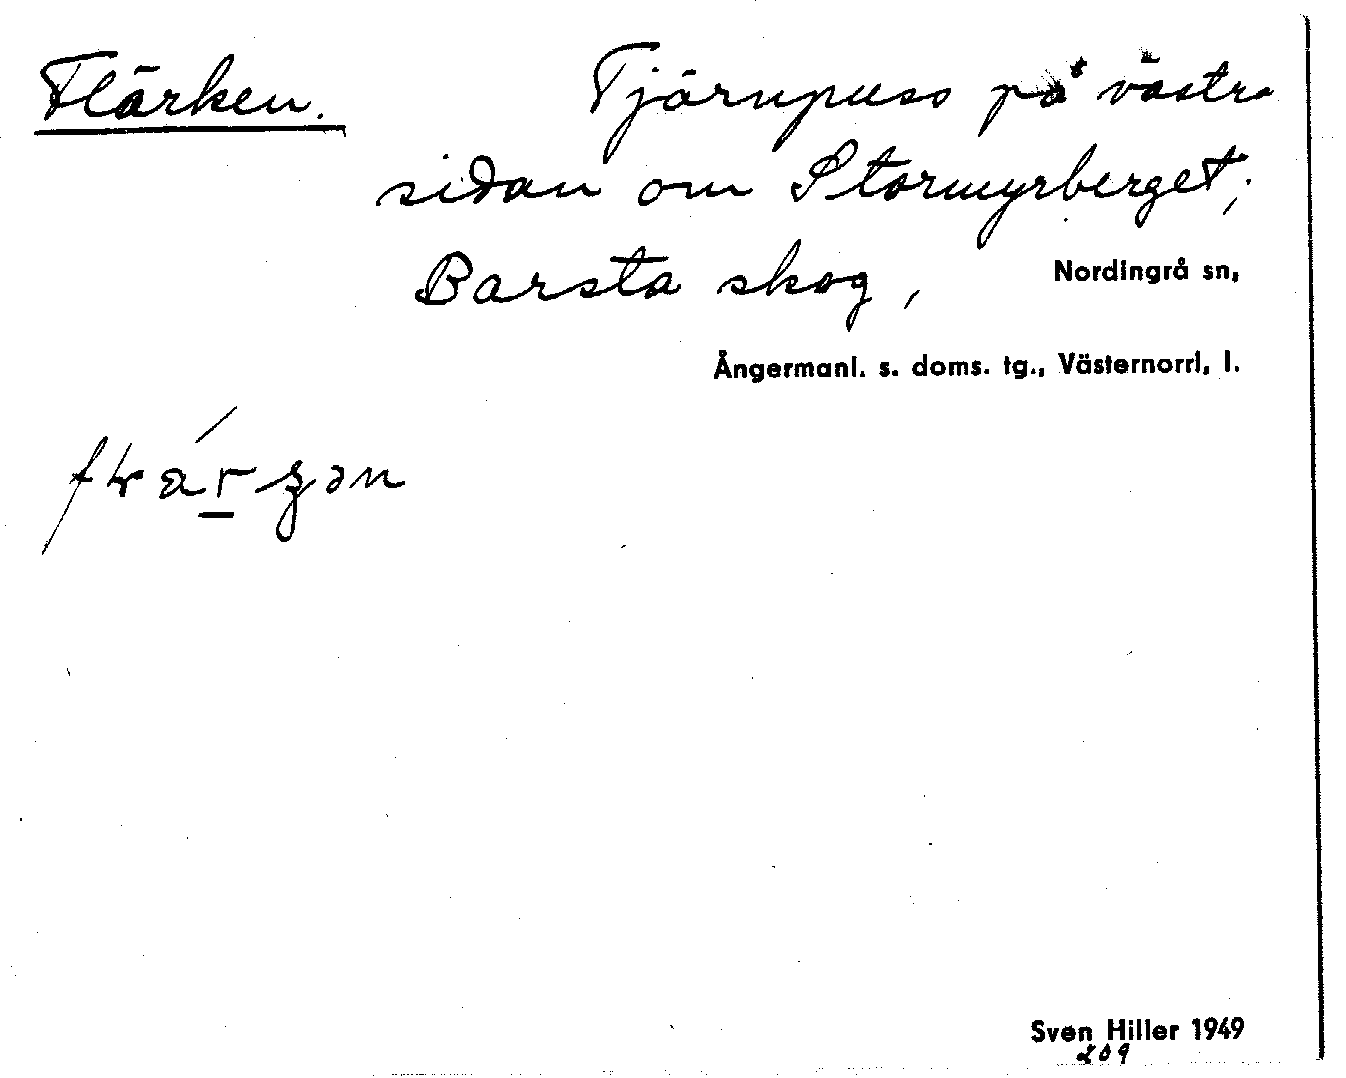 Flärken. Tjärnpuss på västra
sidan om Stormyrberget;
Barsta skog, Nordingrå sn,
Ångermanl. s. doms. tg., Västernorrl. l.
Sven Hiller 1949
209